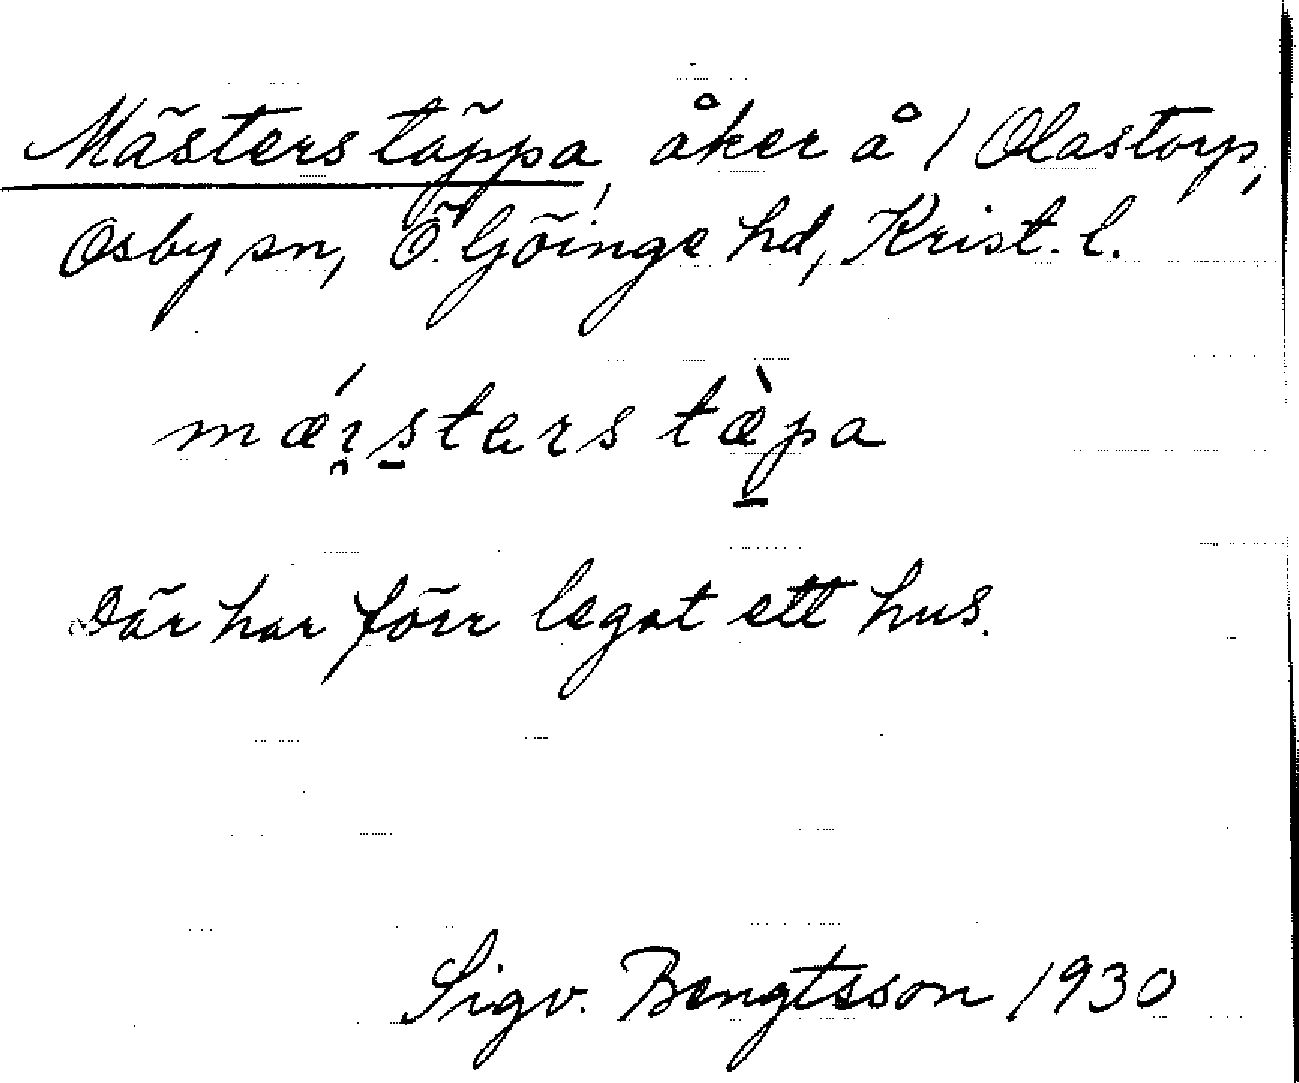 Mästers täppa, åker å 1 Olastorp,
Osby sn, Ö. Göinge hd, Krist. l.
mǽi̯s̱ters tæ̀p̱a
Där har förr legat ett hus.
Sigv. Bengtsson 1930